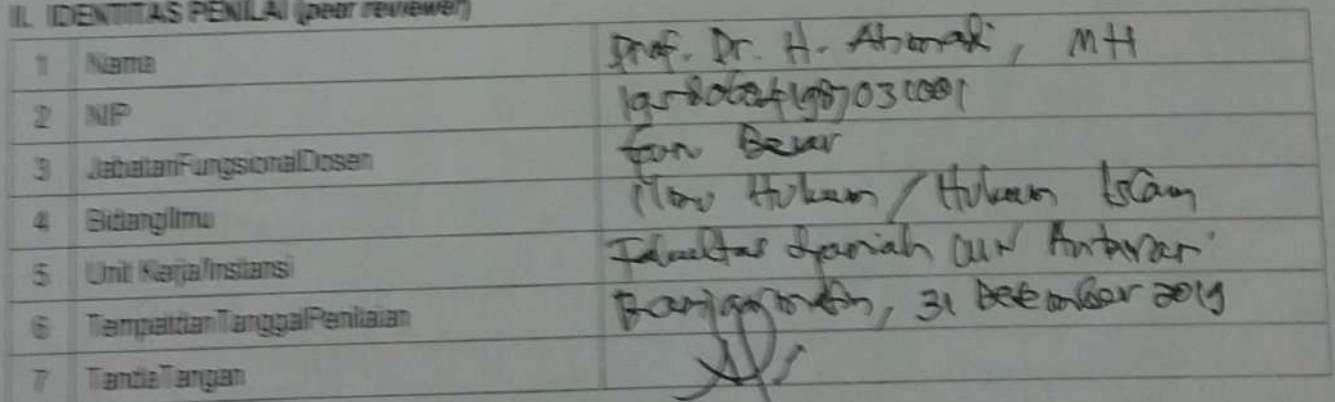 II. IDENTITAS PENILAI (peer reviewer)
1 Nama Prof. Dr. H. Ahmadi, MH
2 NIP
3 JabatanFungsionalDosen Guru Besar
4 BidangIlmu Ilmu Hukum / Hukum Islam
5 Unit Kerja/Instansi Fakultas Syariah UIN Antasari
6 TempatdanTanggalPenilaian Banjarmasin, 31 Desember 2019
7 TandaTangan